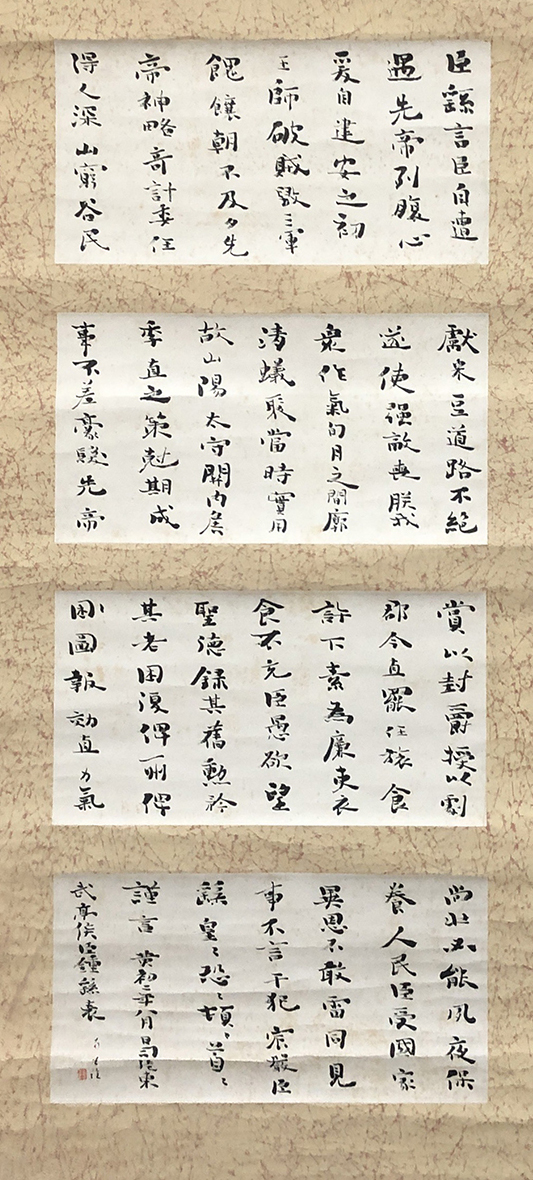 臣繇言臣自遭
遇先帝列腹心
爰自建安之初
王師破賊毀三軍
餽饟朝不及夕先
帝神略奇計委任
得人深山窮谷民
獻米豆道路不絕
遂使强敵喪膽我
衆作氣旬月之間廓
清蟻聚當時實用
故山陽太守關內侯
季直之策尅期成
事不差豪髮先帝
賞以封爵授以劇
郡今直罷任旅食
許下素為廉吏衣
食不充臣愚欲望
聖德錄其舊勳矜
其老困復俾一州俾
圖報効直力氣
尚壯必能夙夜保
養人民臣受國家
異思不敢雷同見
事不言干犯宸嚴臣
繇皇々恐々頓々首々
謹言 黃初二年八月日司徒東
武亭侯臣鍾繇表